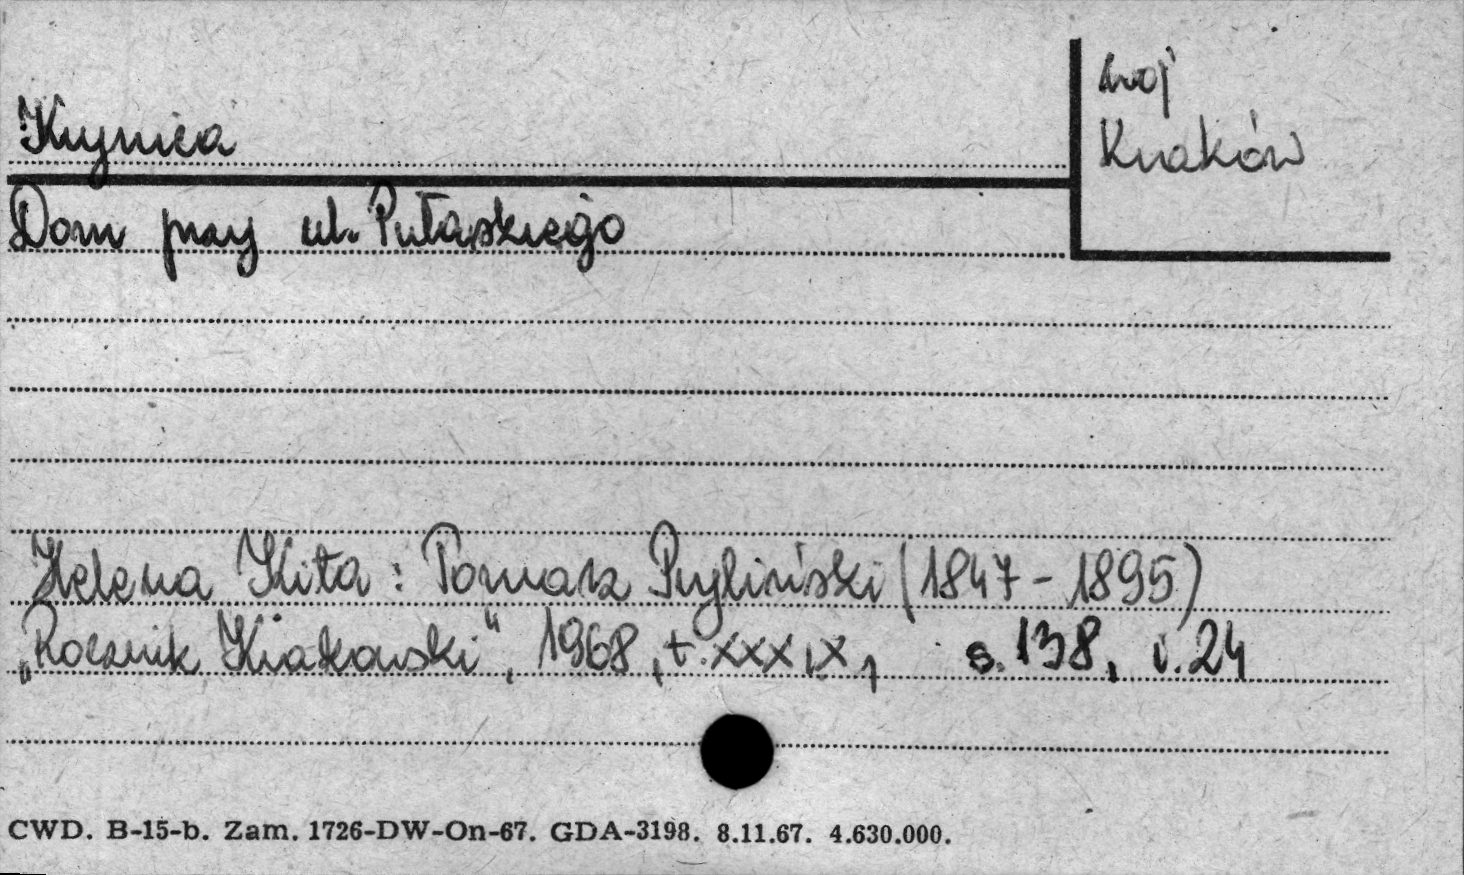 Krynica
woj
Kraków
Dom przy ul. Pułaskiego
Helena Kita: Tomasz Pryliński (1847-1895)
„Rocznik Krakowski", 1968, t. XXXIX, s. 138, i. 24
CWD. B-15-b. Zam. 1726-DW-On-67. GDA-3198. 8.11.67. 4.630.000.